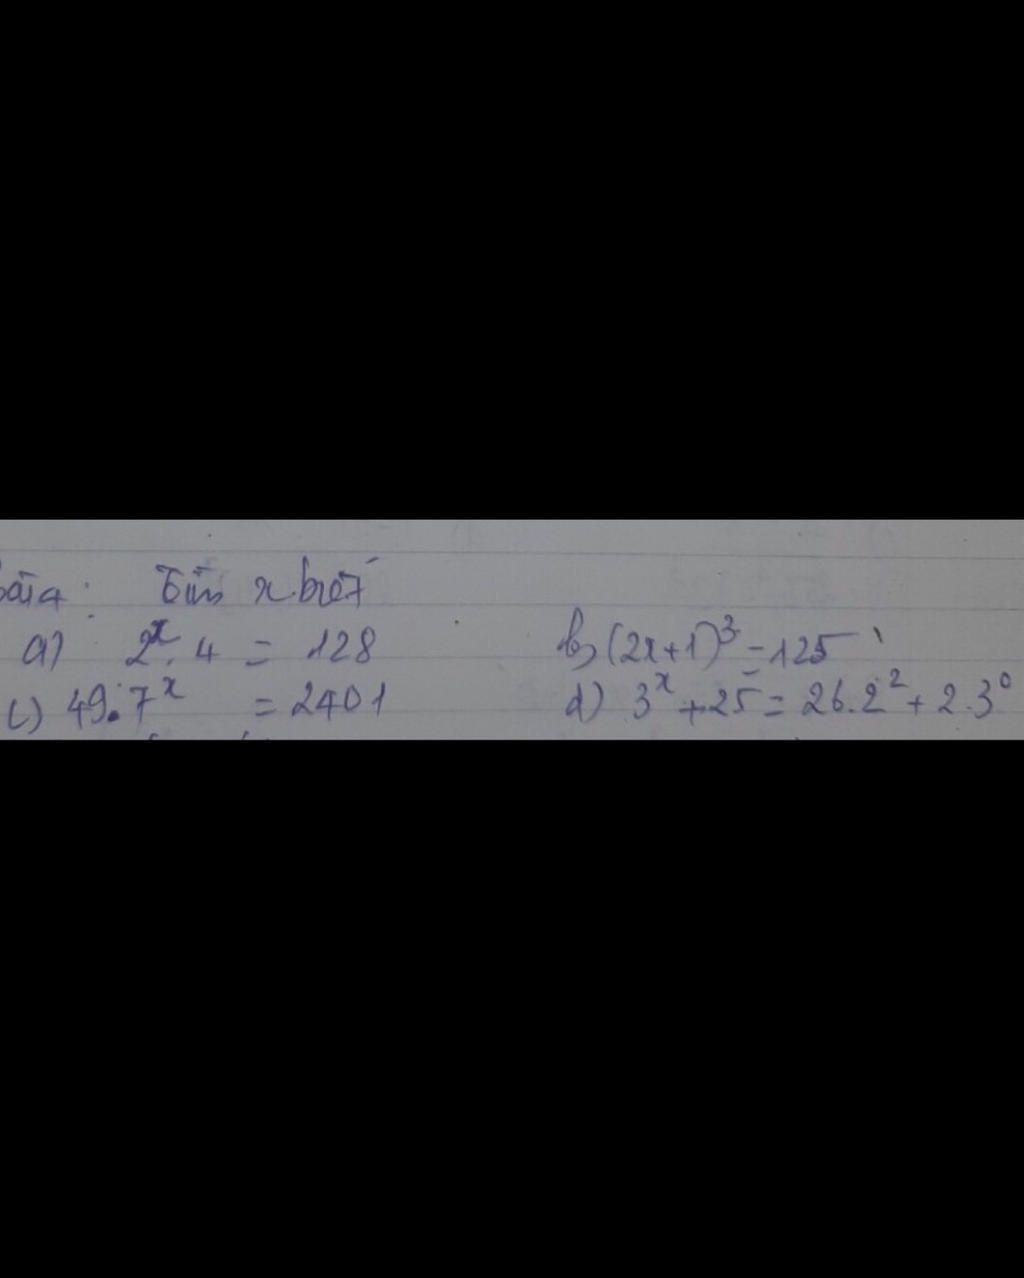 bài 4: Tìm x biết
a) 2^x . 4 = 128 b) (2x+1)^3 = 125
c) 49.7^x = 2401 d) 3^x + 25 = 26.2^2 + 2.3^0